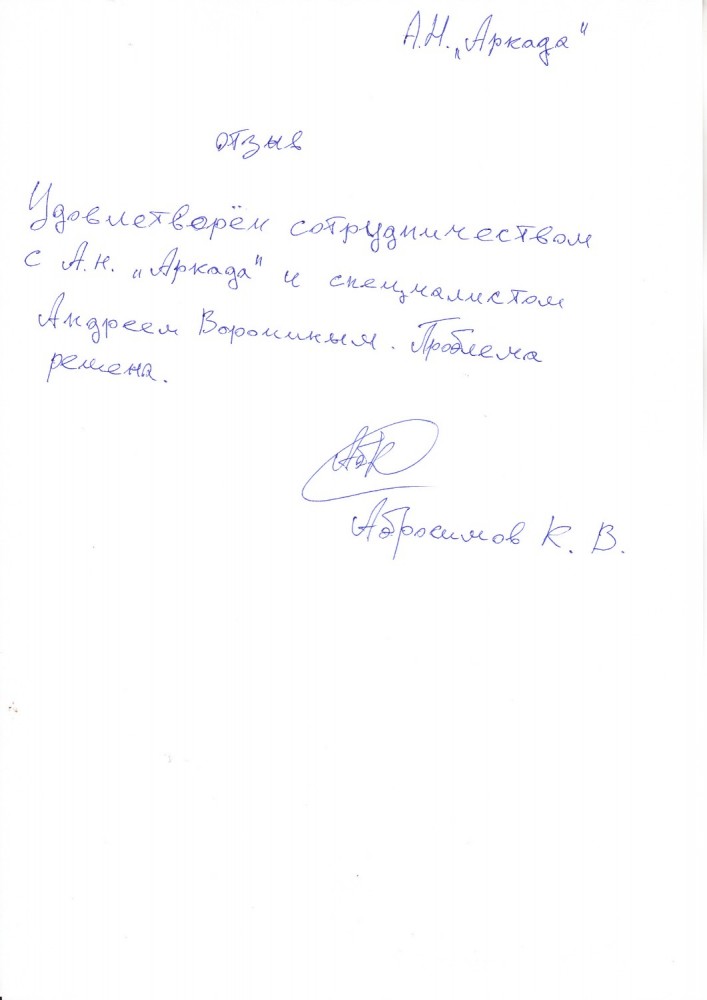 А.Н. „Аркада"
отзыв
Удовлетворён сотрудничеством
с А.н. „Аркада" и специалистом
Андреем Ворониным. Проблема
решена.
Абросимов К. В.